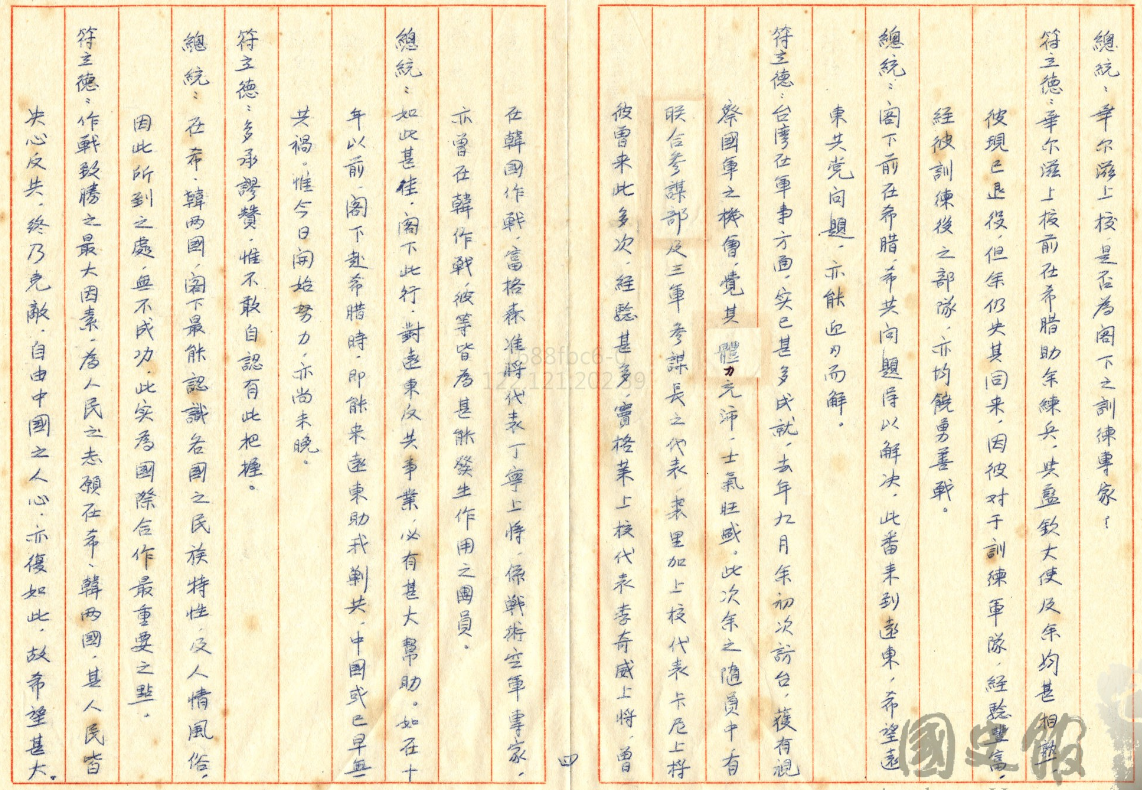 總統：華尔滋上校，是否為閣下之訓練專家！
符立德：華尔滋上校前在希腊助余練兵，共藍欽大使及余均甚相熟
彼現已退役，但余仍共其同来，因彼对于訓練軍隊，経驗豐富，
経彼訓練後之部隊，亦均饒勇善戰。
總統：閣下前在希腊，希共问題得以解决，此番来到遠東，希望遠
東共党问題，亦能迎刃而解。
符立德：台湾在軍事方面，实已甚多成就，去年九月余初次訪台，獲有視
察國軍之機會，覺其體力充沛，士氣旺盛。此次余之隨員中有
联合参謀部及三軍参謀長之代表，裘里加上校代表卡尼上将
彼曾来此多次，経驗甚多，竇格萊上校代表李奇威上将，曾
在韓國作戰，富格森准將代表丁寧上将，係戰術空軍專家，
亦曾在韓作戰，彼等皆為甚能發生作用之團員。
四
總統：如此甚佳，閣下此行，對遠東反共事業，必有甚大幫助。如在十
年以前，閣下赴希腊時，即能来遠東助我剿共，中國或已早無
共禍。惟今日開始努力，亦尚未晚。
符立德：多承謬贊，惟不敢自認有此把握。
總統：在希、韓两國，閣下最能認識各國之民族特性，及人情風俗，
因此所到之處，無不成功，此实為國際合作最重要之點。
符立德：作戰致勝之最大因素，為人民之志願在希、韓两國，其人民皆
决心反共，終乃克敵，自由中國之人心，亦復如此，故希望甚大。
國史館